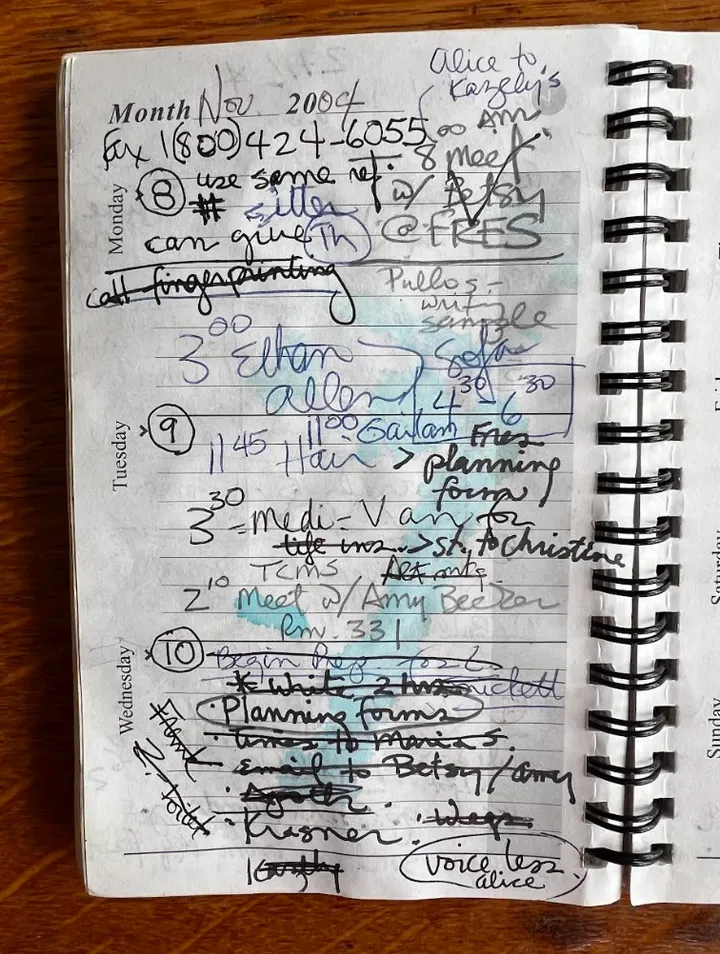 Alice to
Month Nov. 2004
Fax 1(800)424-6055
8 00 AM
Meet
w/ Betsy
@FRES
Monday
8
use same ref.
#
sitter
can give Th
call fingerprinting
Pullos -
writing
sample
3 00 Ethan
Allen
Sofa
4 30 - 6 30
Tuesday
9
11 00
11 45 Hair > planning
forms
3 30 = Medi = Van for
life ins. > st. to Christine
TCMS
2 10 Meet w/ Amy
Rm. 331
Wednesday
10
Begin Prep. for
* write 2 hrs
Planning forms
times to Maria S.
email to Betsy/Amy
Krasner
voice less
alice